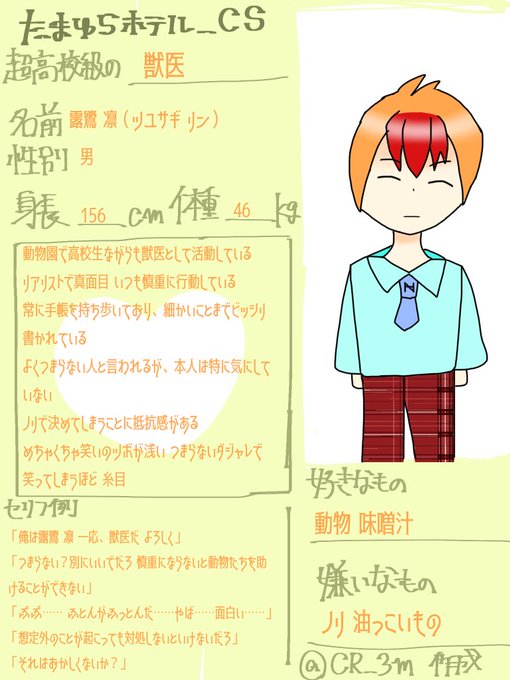 たまゆらホテル_CS
超高校級の 獣医
名前 露鷺 凛 (ツユサギ リン)
性別 男
身長 156 cm 体種 46 kg
動物園で高校生ながらも獣医として活動している
リアリストで真面目 いつも慎重に行動している
常に手帳を持ち歩いており、細かいことまでビッシリ
書かれている
よくつまらない人と言われるが、本人は特に気にして
いない
ノリで決めてしまうことに抵抗感がある
めちゃくちゃ笑いのツボが浅い つまらないダジャレで
笑ってしまうほど 糸目
セリフ例
「俺は露鷺 凛 一応、獣医だ よろしく」
「つまらない?別にいいでだろ 慎重にならないと動物たちを助
けることができない」
「ぷぷ…… ふとんがふっとんだ……やば……面白い……」
「想定外のことが起こっても対処しないといけないだろ」
「それはおかしくないか?」
N
好きなもの
動物 味噌汁
嫌いなもの
ノリ 油っこいもの
@CR_3m 作成